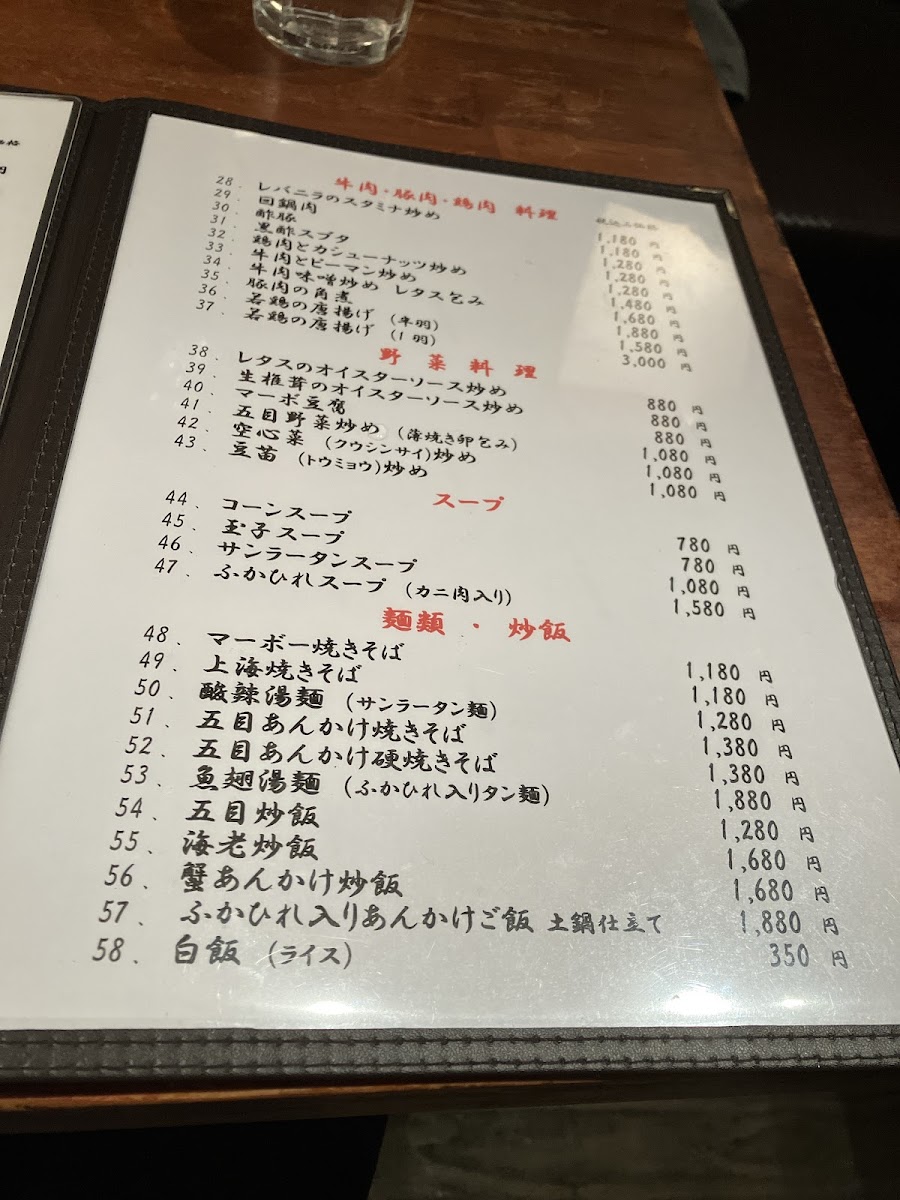 牛肉・豚肉・鶏肉 料理
税込み価格
28. レバニラのスタミナ炒め 1,180 円
29. 回鍋肉 1,180 円
30. 酢豚 1,280 円
31. 黒酢スブタ 1,280 円
32. 鶏肉とカシューナッツ炒め 1,280 円
33. 牛肉とピーマン炒め 1,480 円
34. 牛肉味噌炒め レタス包み 1,680 円
35. 豚肉の角煮 1,880 円
36. 若鶏の唐揚げ (半羽) 1,580 円
37. 若鶏の唐揚げ (1羽) 3,000 円
野菜料理
38. レタスのオイスターソース炒め 880 円
39. 生椎茸のオイスターソース炒め 880 円
40. マーボ豆腐 880 円
41. 五目野菜炒め (薄焼き卵包み) 1,080 円
42. 空心菜 (クウシンサイ)炒め 1,080 円
43. 豆苗 (トウミョウ)炒め 1,080 円
スープ
44. コーンスープ 780 円
45. 玉子スープ 780 円
46. サンラータンスープ 1,080 円
47. ふかひれスープ (カニ肉入り) 1,580 円
麺類・炒飯
48. マーボー焼きそば 1,180 円
49. 上海焼きそば 1,180 円
50. 酸辣湯麺 (サンラータン麺) 1,280 円
51. 五目あんかけ焼きそば 1,380 円
52. 五目あんかけ硬焼きそば 1,380 円
53. 魚翅湯麺 (ふかひれ入りタン麺) 1,880 円
54. 五目炒飯 1,280 円
55. 海老炒飯 1,680 円
56. 蟹あんかけ炒飯 1,680 円
57. ふかひれ入りあんかけご飯 土鍋仕立て 1,880 円
58. 白飯 (ライス) 350 円